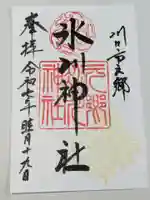 川口市元郷
氷川神社
奉拝 令和七年 睦月十九日
元郷